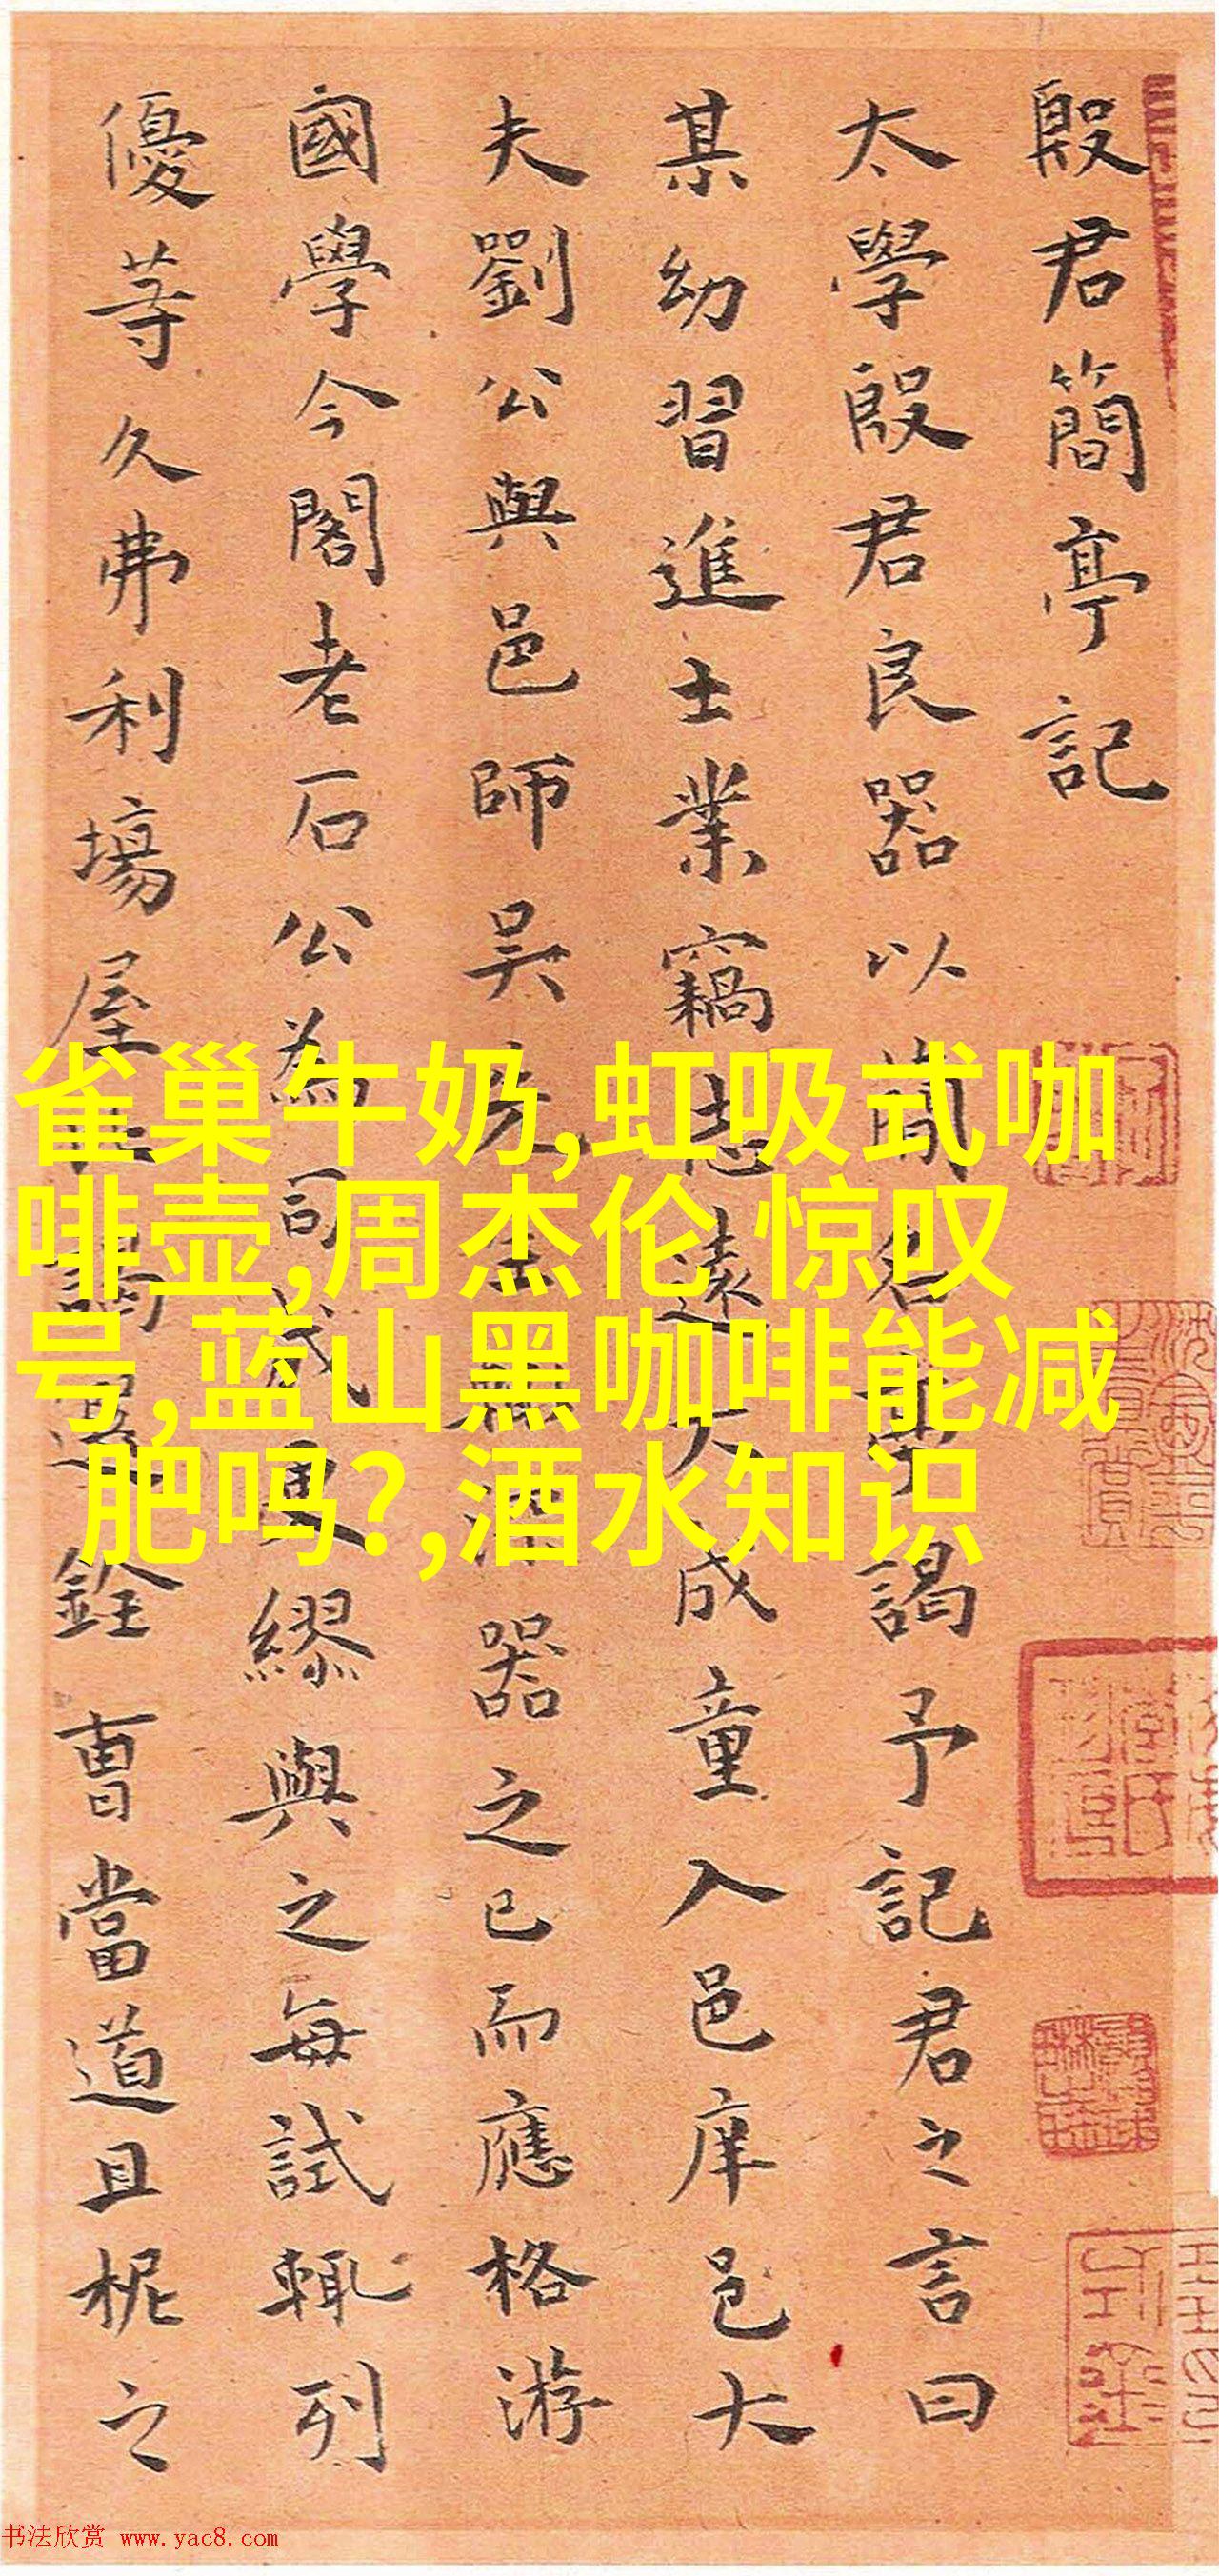 殷君簡亭記
太學殷君良器以簡名亭謁予記君之言曰
某幼習進士業竊志遠大成童入邑庠邑大
夫劉公與邑師吳器之已而應格游
國學今閣老石公為司成更繆與之每試輒列
優等久弗利場屋選銓曹當道且柅之
雀巢牛奶,虹吸式咖
啡壶,周杰伦 惊叹
号,蓝山黑咖啡能减
肥吗?,酒水知识
书法欣赏 www.yac8.com